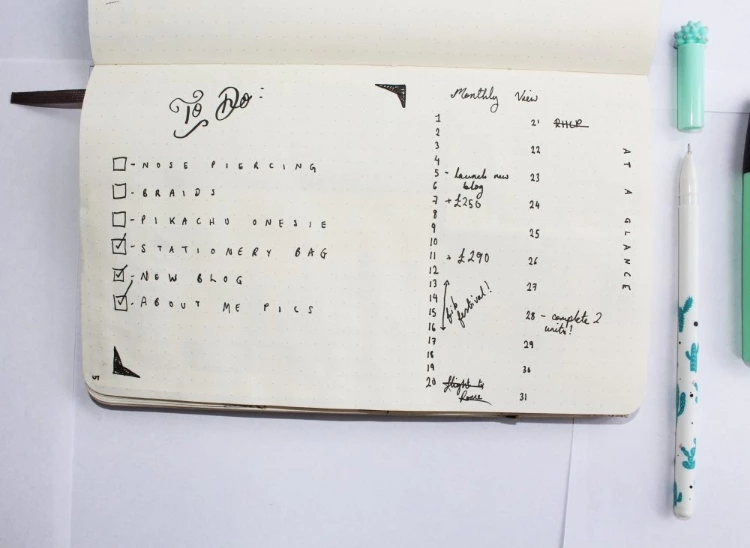 To Do:
- NOSE PIERCING
- BRAIDS
- PIKACHU ONESIE
- STATIONERY BAG
- NEW BLOG
- ABOUT ME PICS
Monthly View
1
2
3
4
5 - launch new
blog
6
7 → £256
8
9
10
11 → £290
12
13
14
15
16
festival!
17
18
19
20 flight to
Rome
21
22
23
24
25
26
27
28 - complete 2
units!
29
30
31
AT A GLANCE